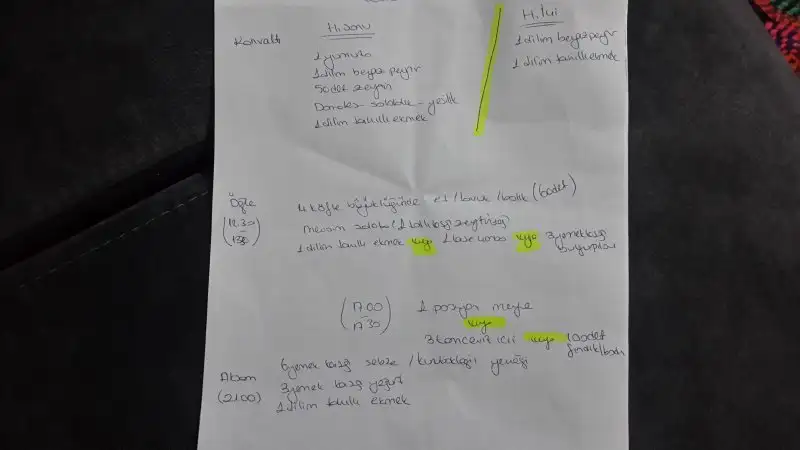 Kahvaltı
H.sonu
1 yumurta
1 dilim beyaz peynir
5 adet zeytin
Domates - salatalık - yeşillik
1 dilim tahıllı ekmek
H.İçi
1 dilim beyaz peynir
1 dilim tahıllı ekmek
Öğle
(12.30
13.30)
4 köfte büyüklüğünde et / tavuk / balık (6 adet)
mevsim salata (1 tatlı kaşığı zeytinyağ)
1 dilim tahıllı ekmek veya 1 kase çorba veya 3 yemek kaşığı
bulgur pilavı
(17.00
17.30)
1 porsiyon meyve
veya
3 tane ceviz içi veya 10 adet
fındık/badem
Akşam
(21.00)
6 yemek kaşığı sebze / kurubaklagil yemeği
3 yemek kaşığı yoğurt
1 dilim tahıllı ekmek